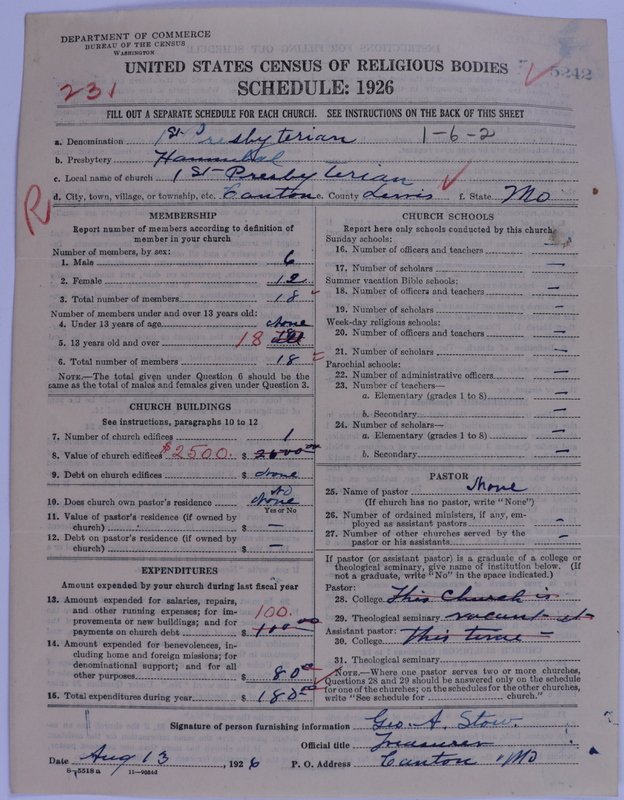 DEPARTMENT OF COMMERCE
BUREAU OF THE CENSUS
WASHINGTON
UNITED STATES CENSUS OF RELIGIOUS BODIES
5242
231
SCHEDULE: 1926
FILL OUT A SEPARATE SCHEDULE FOR EACH CHURCH. SEE INSTRUCTIONS ON THE BACK OF THIS SHEET
a. Denomination 1st Presbyterian 1-6-2
b. Presbytery Hannibal
c. Local name of church 1st Presbyterian
d. City, town, village, or township, etc. Canton e. County Lewis f. State Mo
R
MEMBERSHIP
Report number of members according to definition of
member in your church
Number of members, by sex:
1. Male 6
2. Female 12
3. Total number of members 18
Number of members under and over 13 years old:
4. Under 13 years of age None
5. 13 years old and over 18
6. Total number of members 18
NOTE.—The total given under Question 6 should be
same as the total of males and females given under Question 3.
CHURCH BUILDINGS
See instructions, paragraphs 10 to 12
7. Number of church edifices 1
8. Value of church edifices $2500. $ 2500 00
9. Debt on church edifices $ None
10. Does church own pastor's residence No None
Yes or No
11. Value of pastor's residence (if owned by
church) $ —
12. Debt on pastor's residence (if owned by
church) $ —
EXPENDITURES
Amount expended by your church during last fiscal year
13. Amount expended for salaries, repairs,
and other running expenses; for im-
provements or new buildings; and for
payments on church debt 100. $ 100 00
14. Amount expended for benevolences, in-
cluding home and foreign missions; for
denominational support; and for all
other purposes $ 80 00
15. Total expenditures during year $ 180 00
CHURCH SCHOOLS
Report here only schools conducted by this church
Sunday schools:
16. Number of officers and teachers —
17. Number of scholars —
Summer vacation Bible schools:
18. Number of officers and teachers —
19. Number of scholars —
Week-day religious schools:
20. Number of officers and teachers —
21. Number of scholars —
Parochial schools:
22. Number of administrative officers —
23. Number of teachers—
a. Elementary (grades 1 to 8) —
b. Secondary —
24. Number of scholars—
a. Elementary (grades 1 to 8) —
b. Secondary —
PASTOR
25. Name of pastor None
(If church has no pastor, write "None")
26. Number of ordained ministers, if any, em-
ployed as assistant pastors —
27. Number of other churches served by the
pastor or his assistants —
If pastor (or assistant pastor) is a graduate of a college or
theological seminary, give name of institution below. (If
not a graduate, write "No" in the space indicated.)
Pastor:
28. College This church is
29. Theological seminary vacant at
Assistant pastor:
30. College this time –
31. Theological seminary
NOTE.—Where one pastor serves two or more churches,
Questions 28 and 29 should be answered only on the schedule
for one of the churches; on the schedules for the other churches,
write "See schedule for church."
Signature of person furnishing information Geo. A. Stow.
Official title Treasurer
Date Aug 13, 1926 P. O. Address Canton Mo
8-5518a